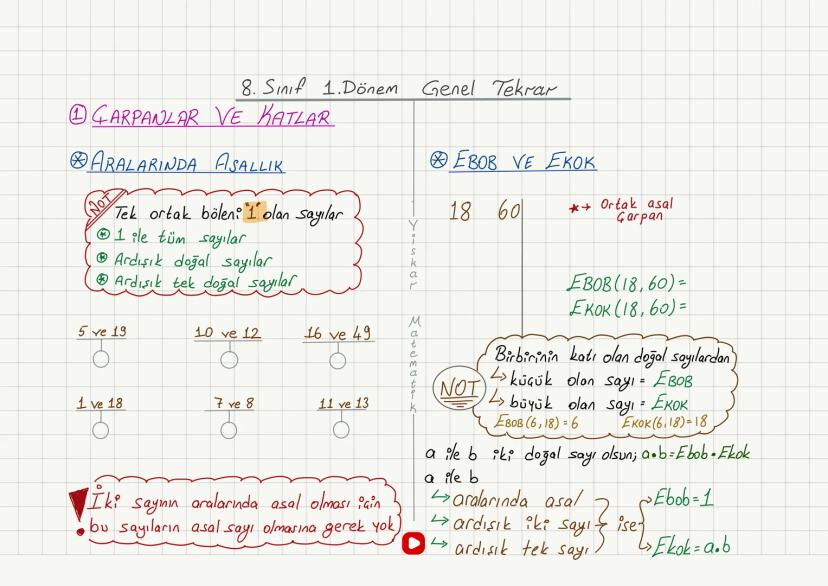 8. Sınıf 1.Dönem Genel Tekrar
① ÇARPANLAR VE KATLAR
ARALARINDA ASALLIK
NOT
Tek ortak böleni "1" olan sayılar
1 ile tüm sayılar
Ardışık doğal sayılar
Ardışık tek doğal sayılar
5 ve 19
10 ve 12
16 ve 49
1 ve 18
7 ve 8
11 ve 13
! İki sayının aralarında asal olması için
bu sayıların asal sayı olmasına gerek yok
Yıskar Matematik
EBOB VE EKOK
18 60
★→ Ortak asal
Çarpan
EBOB(18,60)=
EKOK(18,60)=
NOT
Birbirinin katı olan doğal sayılardan
↳ küçük olan sayı = EBOB
↳ büyük olan sayı = EKOK
EBOB(6,18)=6 EKOK(6,18)=18
a ile b iki doğal sayı olsun; a.b=Ebob.Ekok
a ile b
↳ aralarında asal
↳ ardışık iki sayı
↳ ardışık tek sayı
ise
Ebob=1
Ekok=a.b